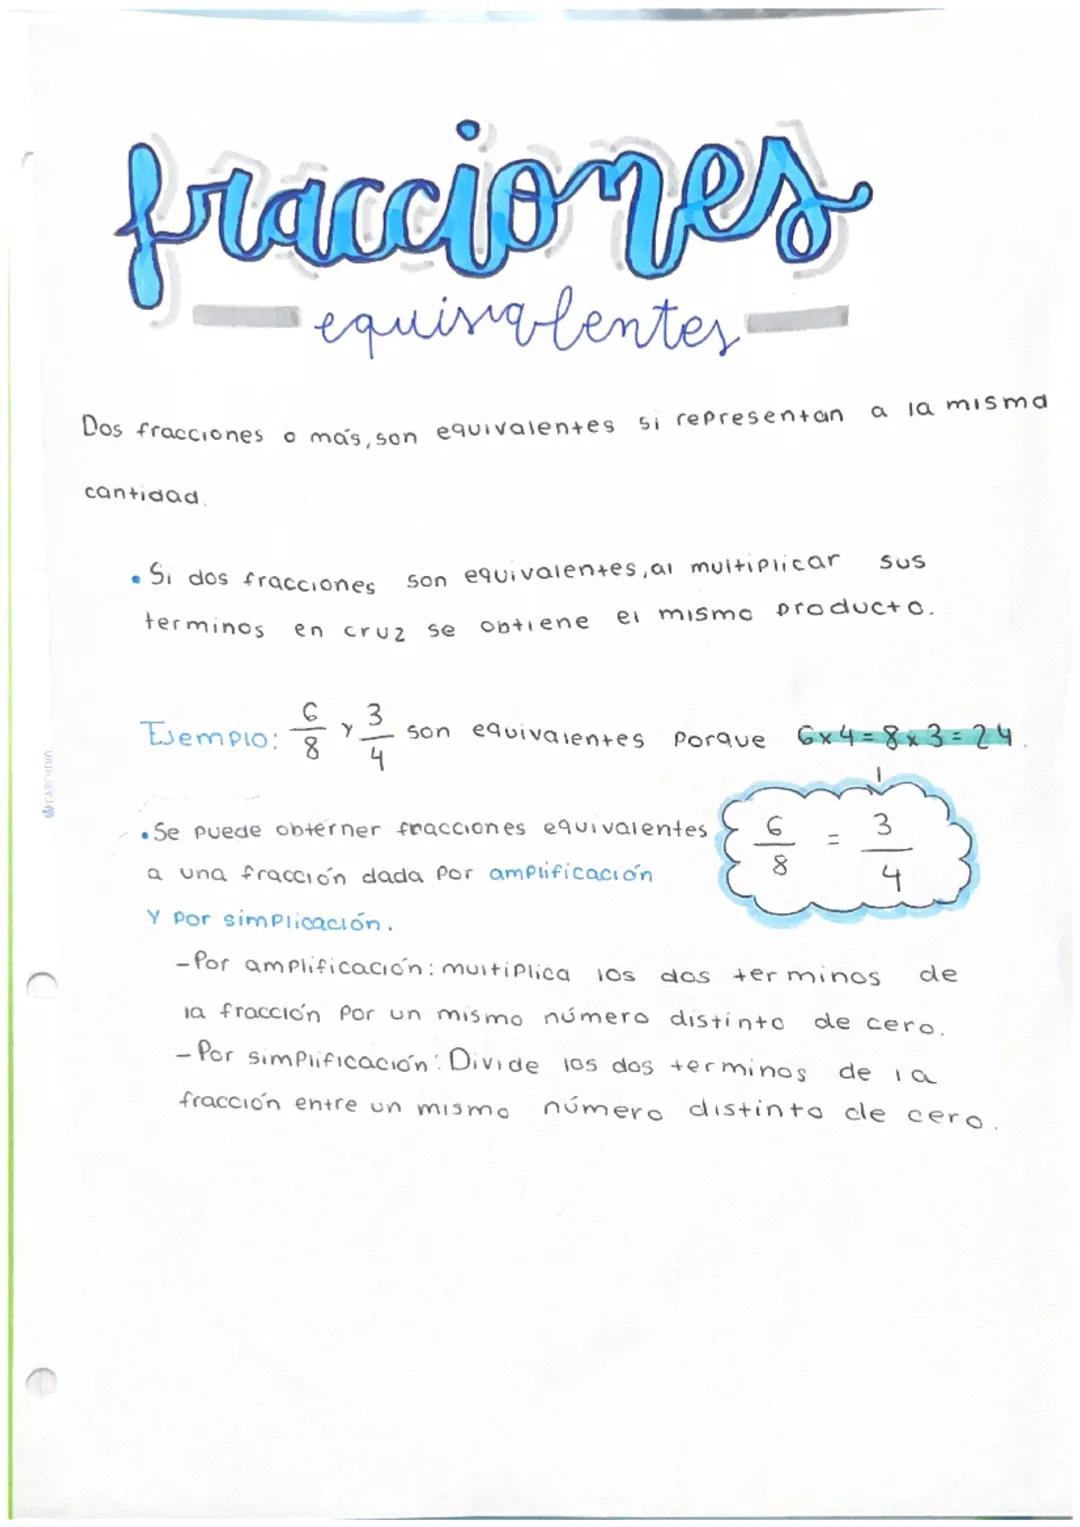 fracciones
equivalentes
Dos fracciones o más, son equivalentes si representan a la misma
cantidad.
• Si dos fracciones son equivalentes, al multiplicar sus
terminos en cruz se obtiene el mismo producto.
Ejemplo: 6/8 y 3/4 son equivalentes porque 6x4=8x3=24.
• Se puede obterner fracciones equivalentes
a una fracción dada por amplificación
y por simplicación.
6/8 = 3/4
- Por amplificación: multiplica los dos terminos de
la fracción por un mismo número distinto de cero.
- Por simplificación: Divide los dos terminos de la
fracción entre un mismo número distinto de cero.